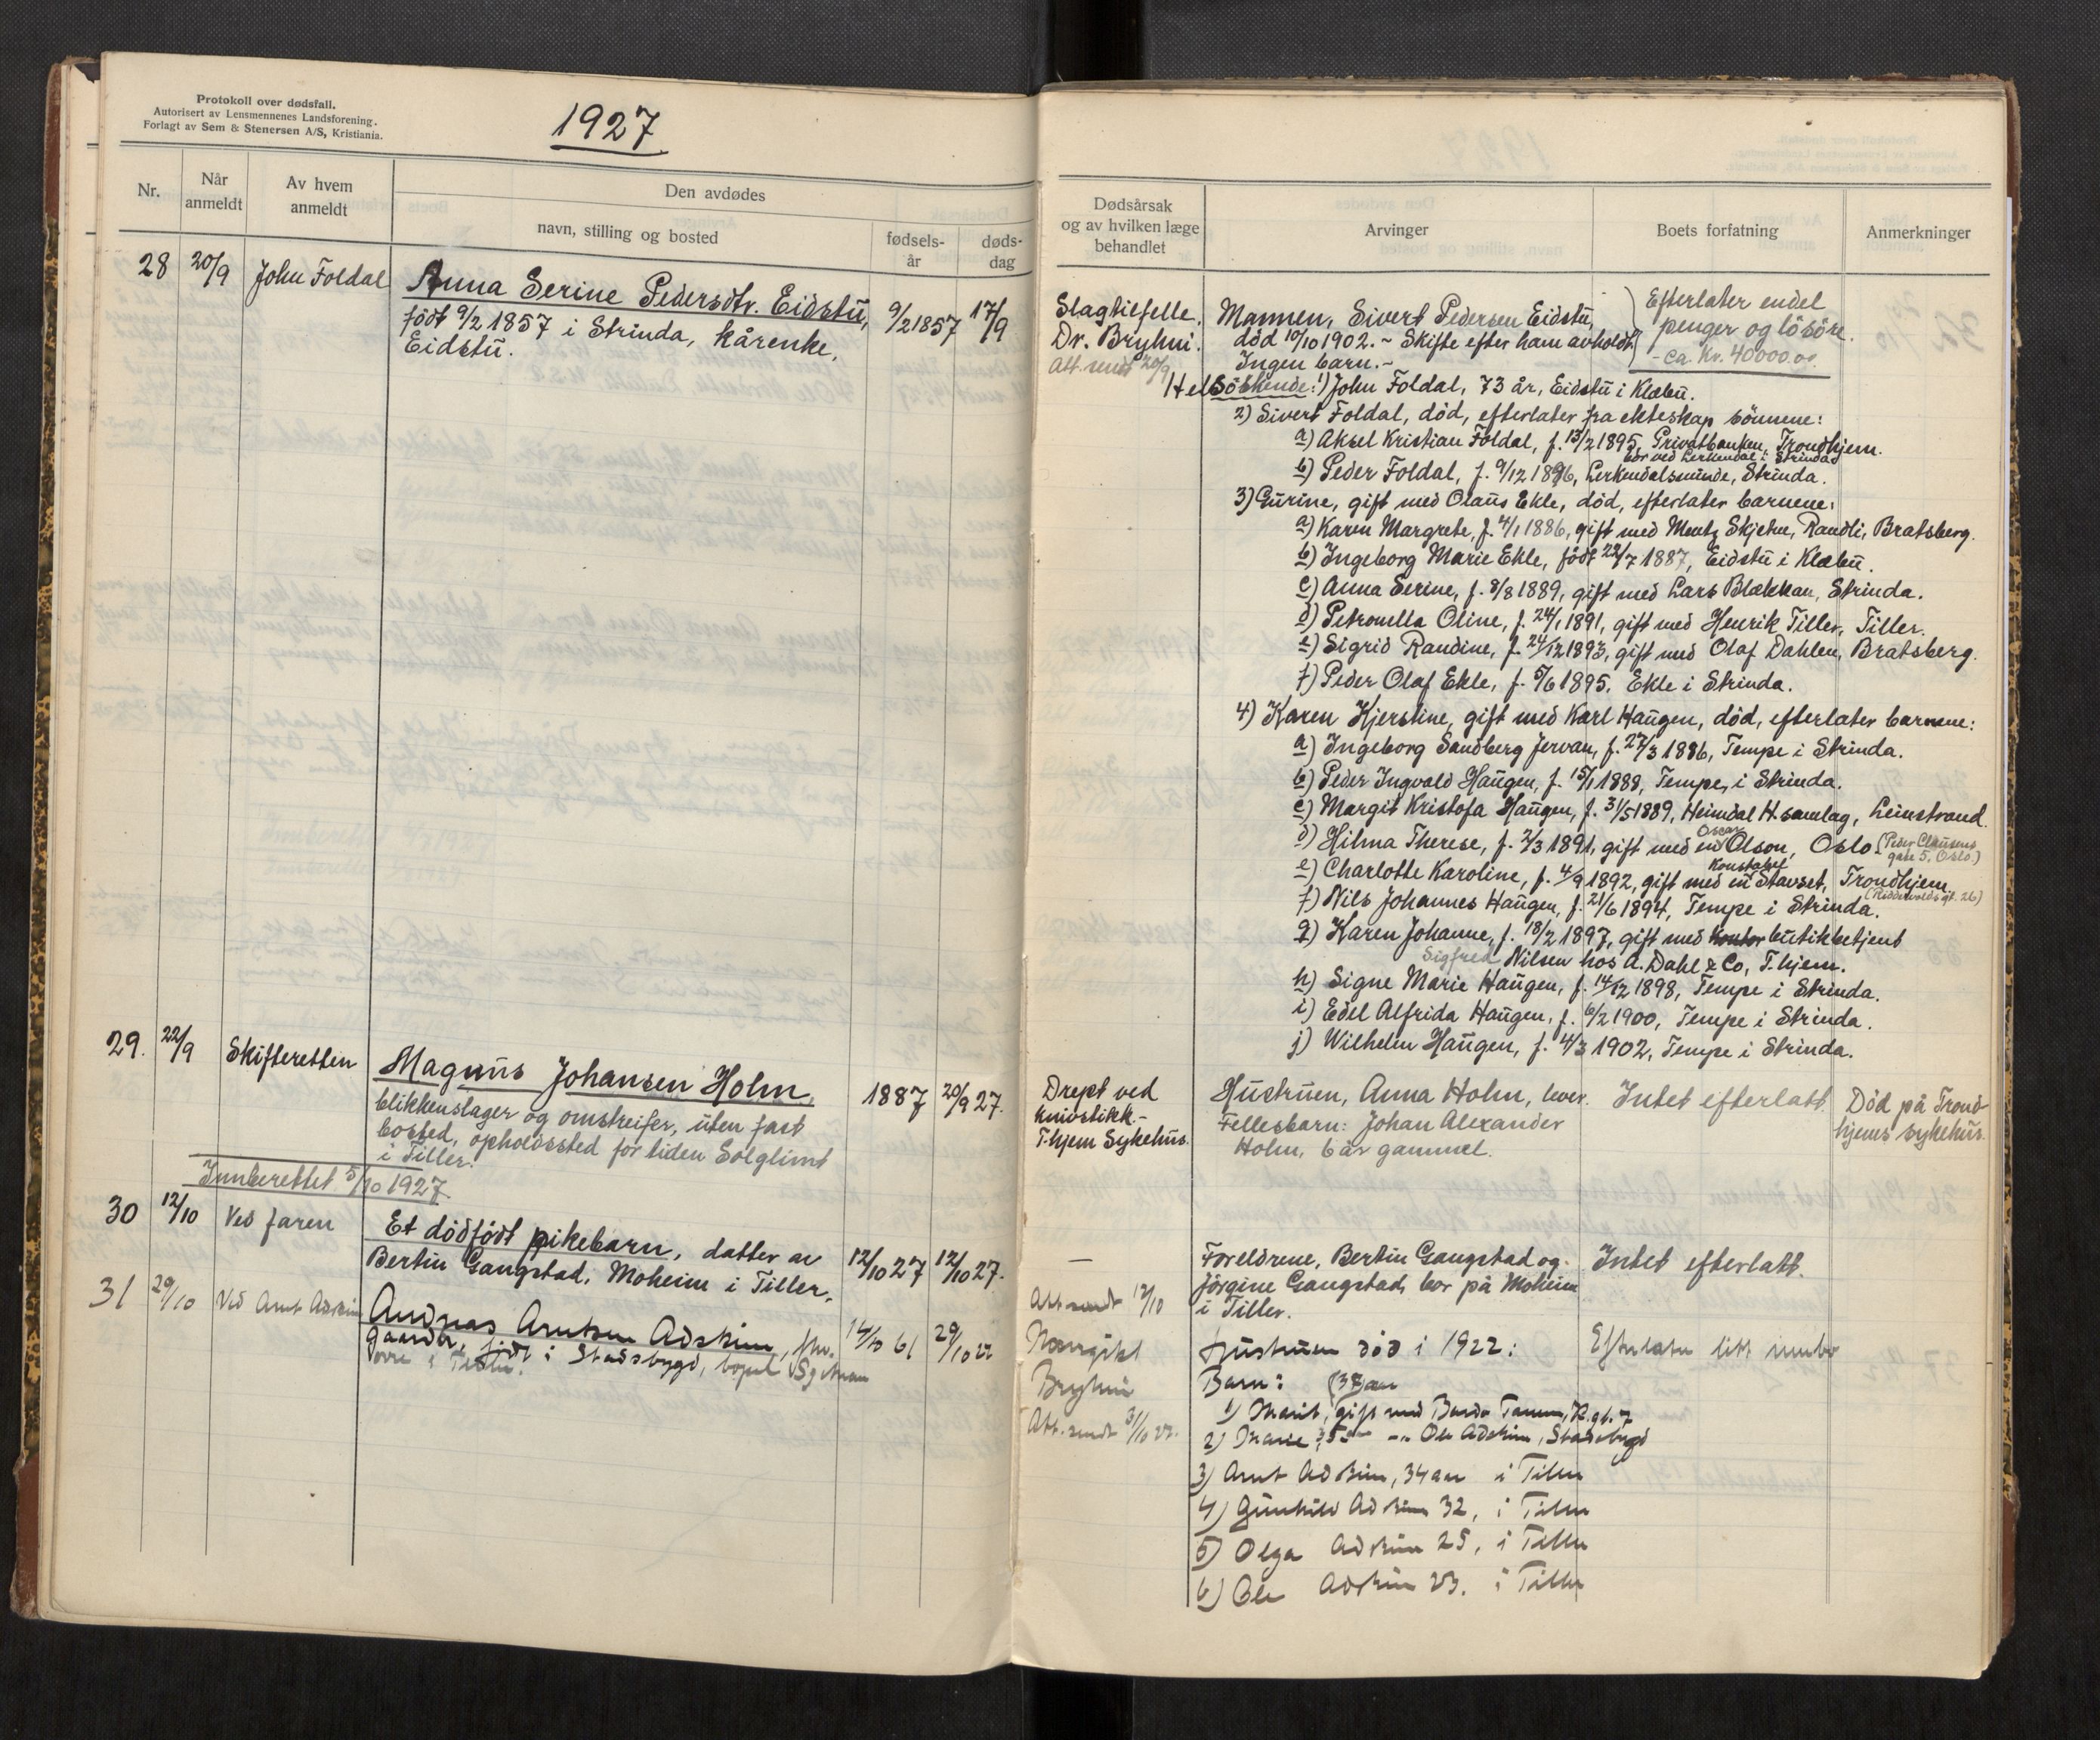 Protokoll over dødsfall.
Autorisert av Lensmennenes Landsforening.
Forlagt av Sem & Stenersen A/S, Kristiania.
1927
Nr.
Når anmeldt
Av hvem anmeldt
Den avdødes
navn, stilling og bosted
fødsels-år
døds-dag
Dødsårsak
og av hvilken læge
behandlet
Arvinger
Boets forfatning
Anmerkninger
28 20/9 John Foldal Anna Serine Pedersdtr. Eidstu, 9/2 1857 17/9
født 9/2 1857 i Strinda, kårenke,
Eidstu.
Slagtilfelle.
Dr. Bryhni.
Att. sendt 20/9
Mannen, Sivert Pedersen Eidstu,
död 10/10 1902. - Skifte efter ham avholdt.
Ingen barn. -
Efterlater endel
penger og lösöre.
- ca. kr. 40000.00.
Helsöskende: 1) John Foldal, 73 år, Eidstu i Klæbu.
2) Sivert Foldal, död, efterlater fra ekteskap sönnene:
a) Aksel Kristian Foldal, f. 13/2 1895, Privatbanken, Trondhjem.
bor ved Lerkendal i Strinda
b) Peder Foldal, f. 9/12 1896, Lerkendalsminde, Strinda.
3) Gurine, gift med Olaus Ekle, död, efterlater barnene:
a) Karen Margrete, f. 4/1 1886, gift med Mentz Skjetne, Randli, Bratsberg.
b) Ingeborg Marie Ekle, födt 22/7 1887, Eidstu i Klæbu.
c) Anna Serine, f. 8/8 1889, gift med Lars Blekkan, Strinda.
d) Petronella Oline, f. 24/1 1891, gift med Henrik Tiller, Tiller.
e) Sigrid Randine, f. 24/12 1893, gift med Olaf Dahlen, Bratsberg.
f) Peder Olaf Ekle, f. 5/6 1895. Ekle i Strinda.
4) Karen Kjerstine, gift med Karl Haugen, död, efterlater barnene:
a) Ingeborg Sandberg Jervan, f. 27/3 1886, Tempe i Strinda.
b) Peder Ingvald Haugen, f. 15/1 1888, Tempe, i Strinda.
c) Margit Kristofa Haugen, f. 31/5 1889, Heimdal H.samlag, Leinstrand.
d) Hilma Therese, f. 2/3 1891, gift med en Oscar Olson, Oslo (Peder Clausens
gate 5, Oslo.)
e) Charlotte Karoline, f. 4/9 1892, gift med en Konstabel Stavset, Trondhjem
f) Nils Johannes Haugen, f. 21/6 1894, Tempe i Strinda.
g) Karen Johanne, f. 18/2 1897, gift med kontor butikkbetjent
Sigfred Nilsen hos A. Dahl & Co, T.hjem.
h) Signe Marie Haugen, f. 14/12 1898, Tempe i Strinda.
i) Edel Alfrida Haugen, f. 6/2 1900, Tempe i Strinda.
j) Wilhelm Haugen, f. 4/3 1902, Tempe i Strinda.
29. 22/9 Skifteretten Magnus Johansen Holm, 1887 20/9 27.
blikkenslager og omstreifer, uten fast
bosted, opholdssted for tiden Solglimt
i Tiller.
Drept ved
knivstikk -
T.hjem Sykehus.
Hustruen, Anna Holm, lever.
Fellesbarn: Johan Alexander
Holm, 6 år gammel.
Intet efterlatt.
Död på Trond-
hjems sykehus.
Innberettet 5/10 1927.
30 12/10 Ved faren Et dödfödt pikebarn, datter av 12/10 27 12/10 27.
Bertin Gangstad, Moheim i Tiller.
—
Att. sendt 12/10
Foreldrene, Bertin Gangstad og
Jörgine Gangstad, bor på Moheim
i Tiller.
Intet efterlatt.
31 29/10 Ved Arnt Adskim Andreas Arntsen Adskim, fhv. 14/10 61 29/10 27
gaardbr., födt i Stadsbygd, bopel
i Tiller.
Bryhni
Att. sendt 31/10 27.
Hustruen död i 1922:
Barn: (37) aar
1) Marit, gift med
2) Marie, 35 -"- Ole Adskim, Stadsbygd
3) Arnt Adskim, 34 aar i Tiller
4) Gunhild Adskim 32, i Tiller
5) Olga Adskim 25, i Tiller
6) Ole Adskim 23. i Tiller
Efterlater litt innbo